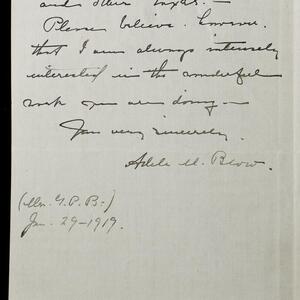 and other taxes. —
Please believe, however,
that I am always intensely
interested in the wonderful
work you are doing —
Yours very sincerely,
Adele M. Blow.
(Mrs. G. P. B.)
Jan. 29-1919.